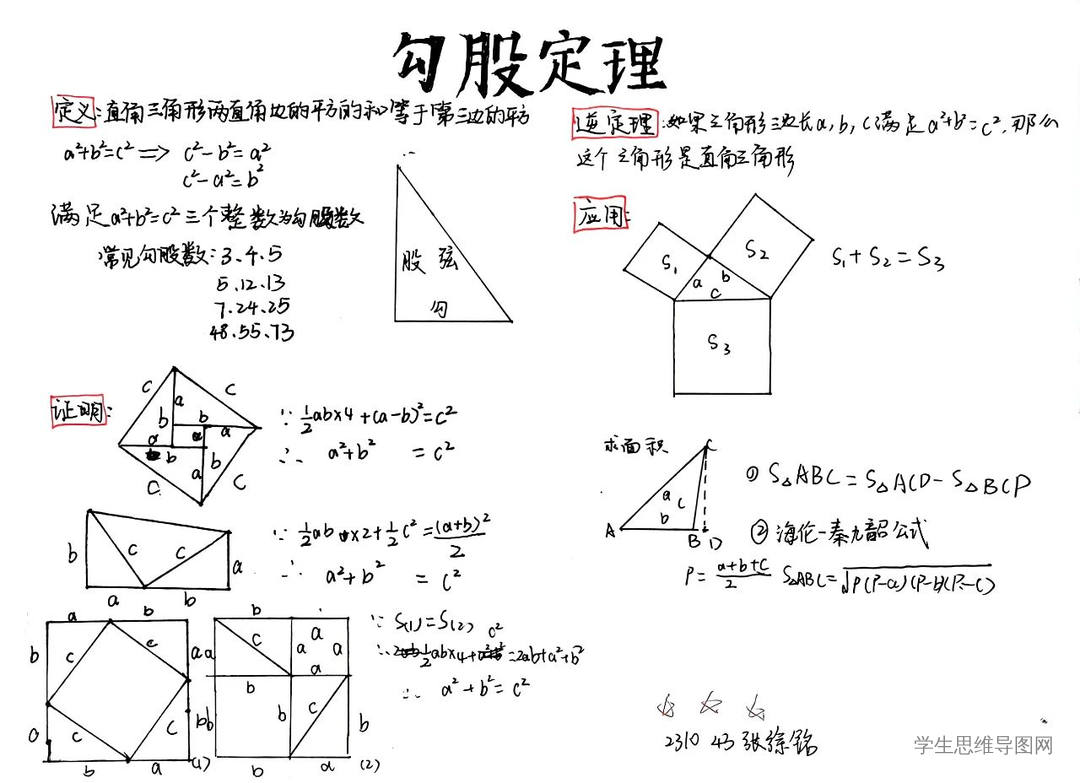 勾股定理
定义:直角三角形两直角边的平方的和等于第三边的平方
a²+b²=c² ⟹ c²-b²=a²
c²-a²=b²
满足a²+b²=c²三个整数为勾股数
常见勾股数:3、4、5
5、12、13
7、24、25
48、55、73
股 弦
勾
逆定理:如果三角形三边长a,b,c满足a²+b²=c²,那么
这个三角形是直角三角形
应用:
S₁
S₂
a b
c
S₃
S₁+S₂=S₃
证明:
c c
a
b b
a a
b a b
a
c c
∵ ½ab×4+(a-b)²=c²
∴ a²+b² =c²
b c c a
a b
∵ ½ab×2+½c²=(a+b)²/2
∴ a²+b² =c²
a b
b c c a
a c c b
b a (1)
b a
a c a a
a
b
b c b
b a (2)
∵ S(1)=S(2)
c²
∴ ½ab×4+ =2ab+a²+b²
∴ a²+b²=c²
求面积
C
a c
b
A B D
① S△ABC=S△ACD-S△BCD
② 海伦-秦九韶公式
P=(a+b+c)/2 S△ABC=√P(P-a)(P-b)(P-c)
2310 43 张综铭
学生思维导图网